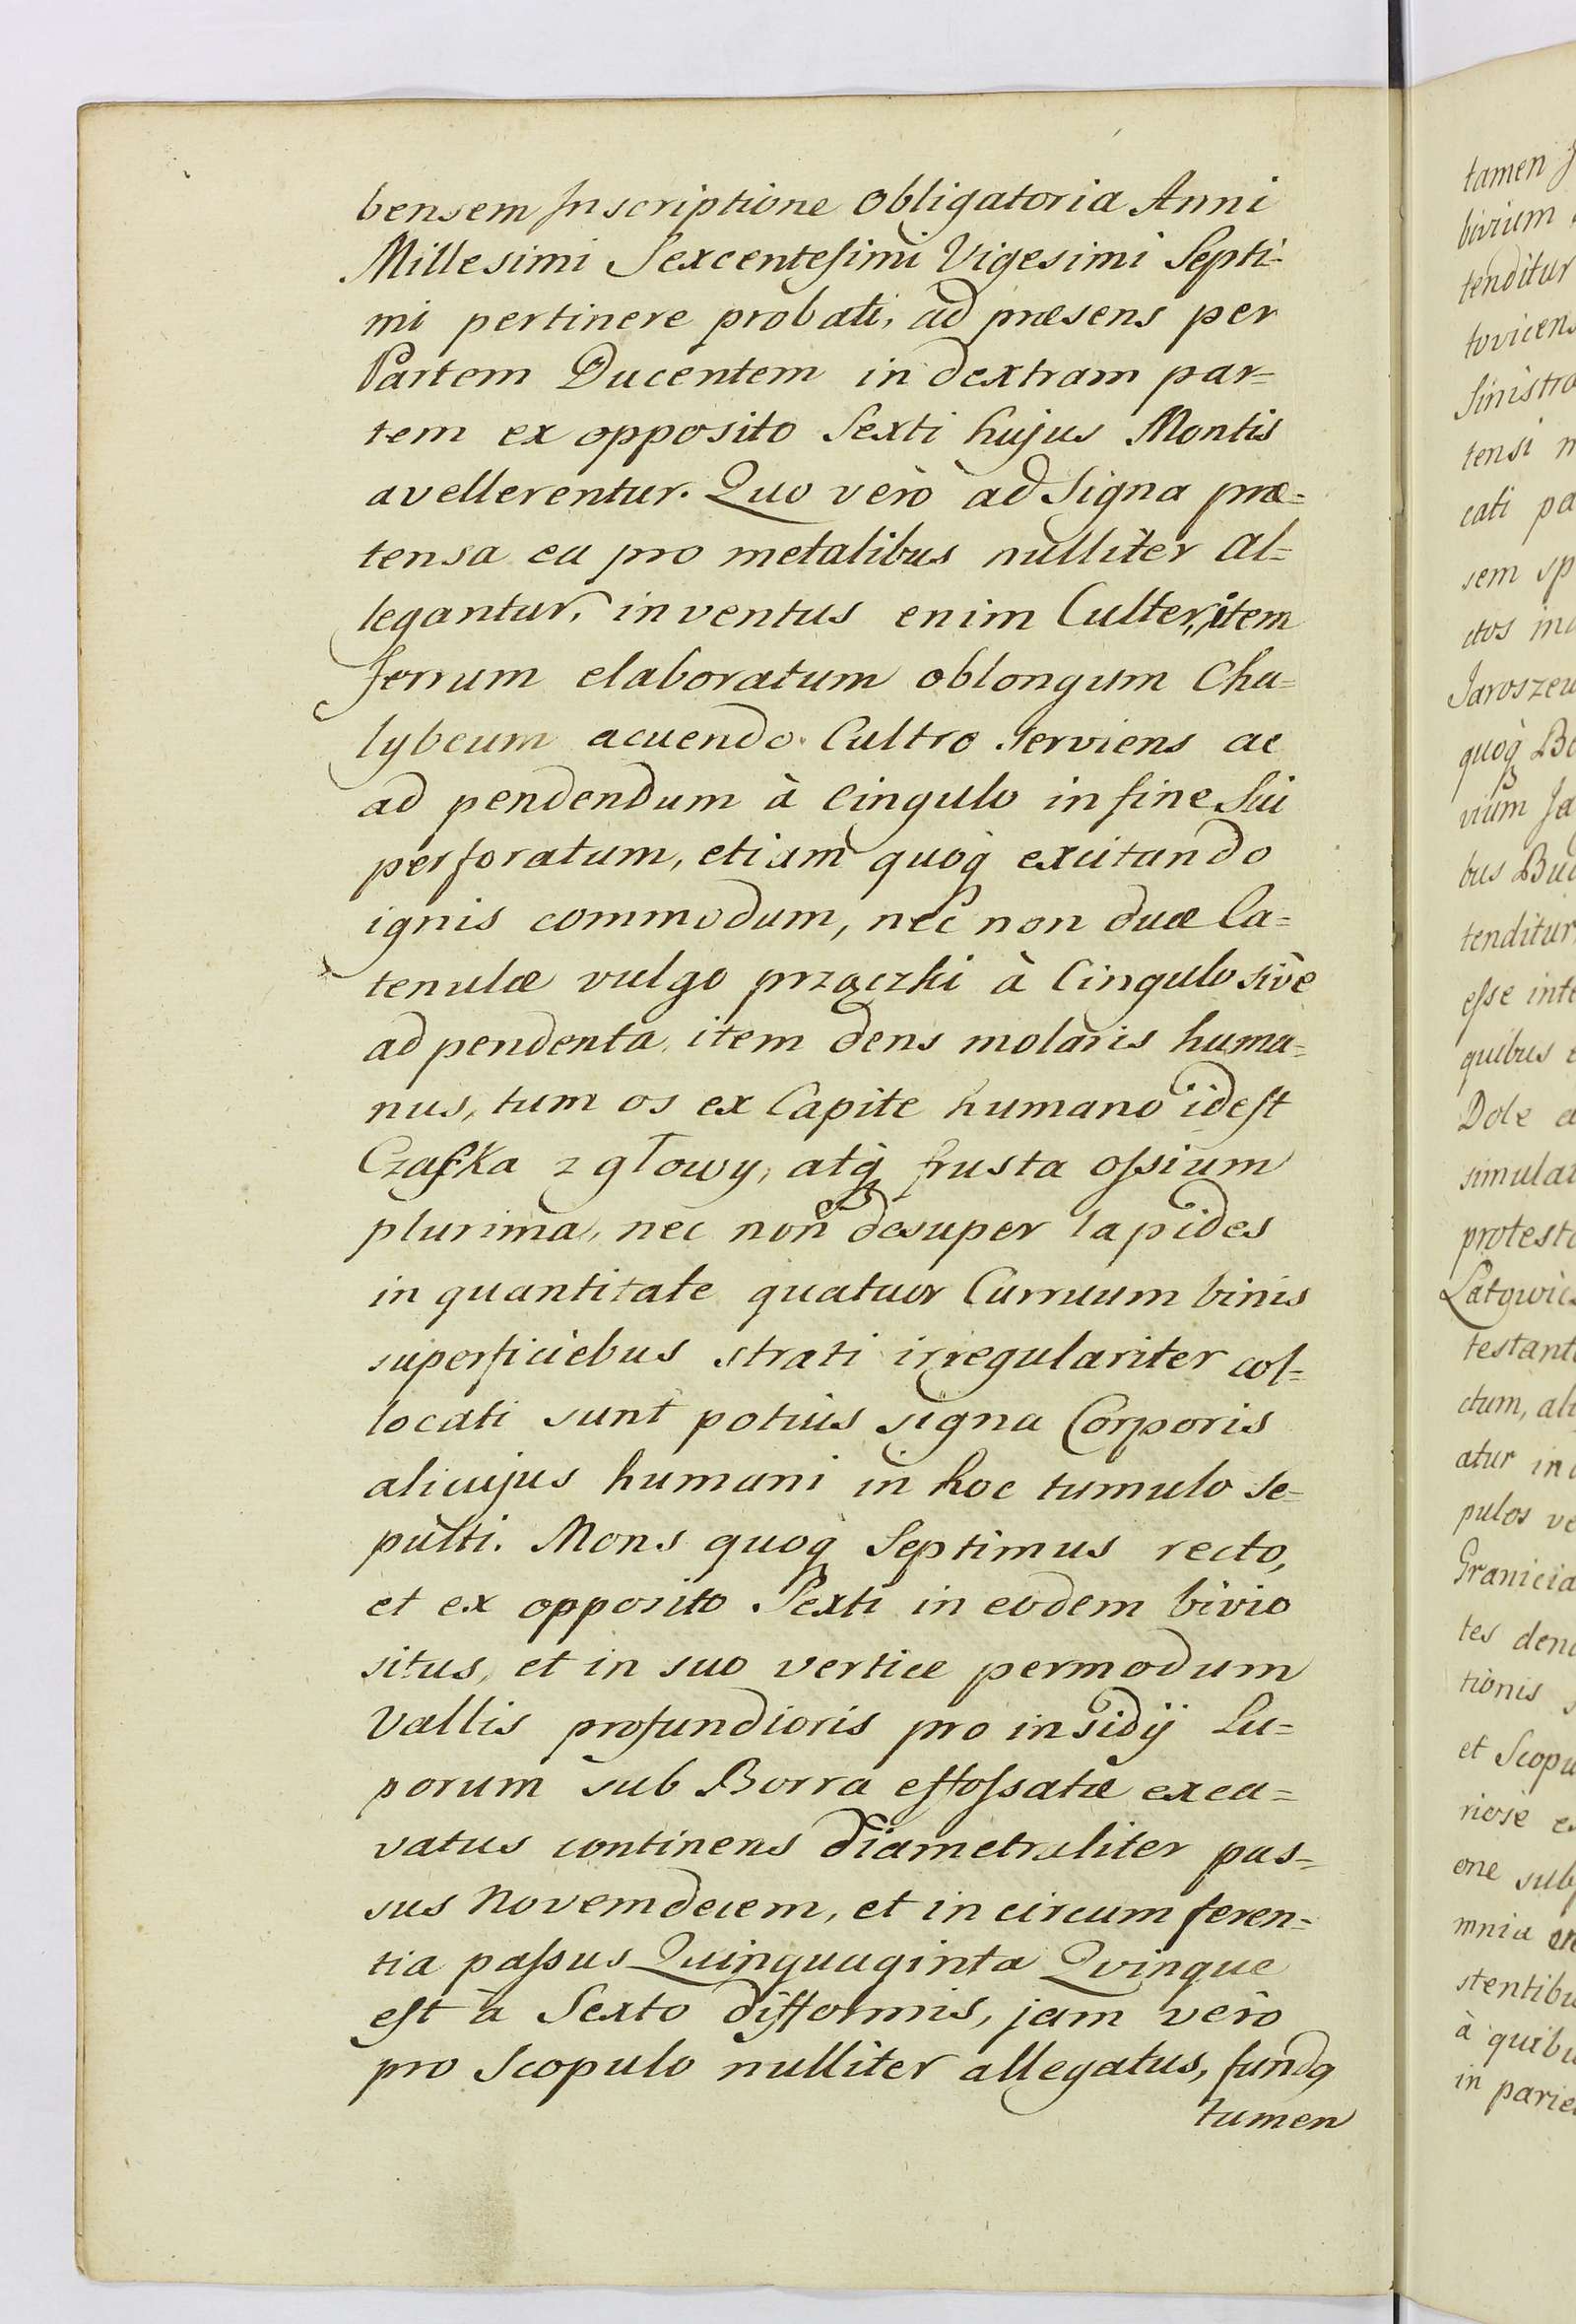 bensem Inscriptione Obligatoria Anni
Millesimi Sexcentesimi Vigesimi Septi-
mi pertinere probati, ad præsens per
Partem Ducentem in dextram par=
tem ex opposito Sexti hujus Montis
avellerentur. Quo verò ad Signa præ=
tensa ea pro metalibus nulliter al=
legantur, inventus enim Culter, item
ferrum elaboratum oblongum Cha=
lybeum acuendo Cultro serviens ac
ad pendendum à Cingulo in fine sui
perforatum, etiam quoq̀ excitando
ignis commodum, nec non duæ Ca=
tenulæ vulgo przączki à Cingulo sivè
ad pendenta, item dens molaris huma=
nus, tum os ex Capite humano idest
Czaſzka z głowy, atq̀ frusta oſsium
plurima, nec non desuper lapides
in quantitate quatuor Curruum binis
superficiebus strati irregulariter col=
locati sunt potius signa Corporis
alicujus humani in hoc tumulo se=
pulti. Mons quoq̀ Septimus recto,
et ex opposito Sexti in eodem bivio
situs, et in suo vertice permodum
Vallis profundioris pro insidij Lu=
porum sub Borra effoſsatæ exca=
vatus continens diametraliter pas=
sus Novemdecem, et in circumferen=
tia paſsus Quinquaginta Quinque
eſt à Sexto difformis, jam verò
pro Scopulo nulliter allegatus,
tamen
tamen
bivium
tenditur
tovicens
Sinistra
tensi
cati pa
sem sp
ctos
Jaroszew
quoq̀ Bo
vium Ja
bus Bud
tenditur
eſse inte
quibus
Dole
simulat
protesta
Łatowic
testant
ctum, ali
atur in
pulos ve
Granicia
tes deno
tionis
et Scopu
riose
one sub
mnia
stentibu
à quibu
in parie